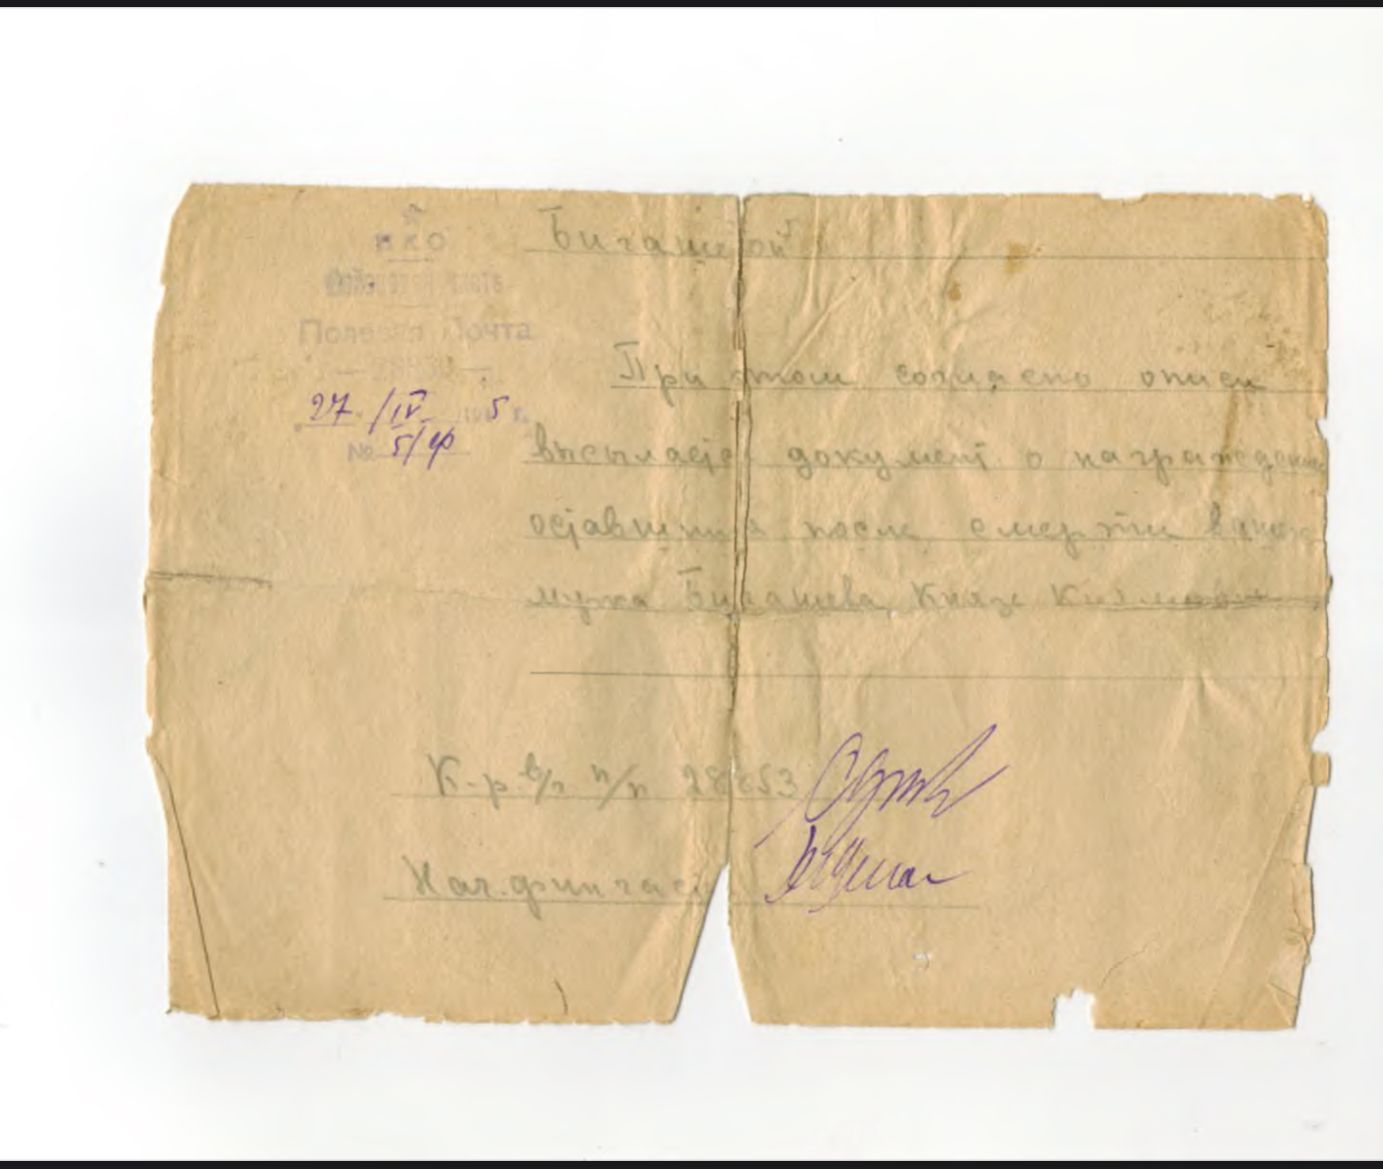 НКО
Полевая Почта
27 /IV 1945 г.
№ 5/ф
Бигашевой
При этом согласно описи
высылается документ о награждении
оставшийся после смерти
мужа Бигашева Княз
К-р в/ч п/п 28853
Нач. фин части